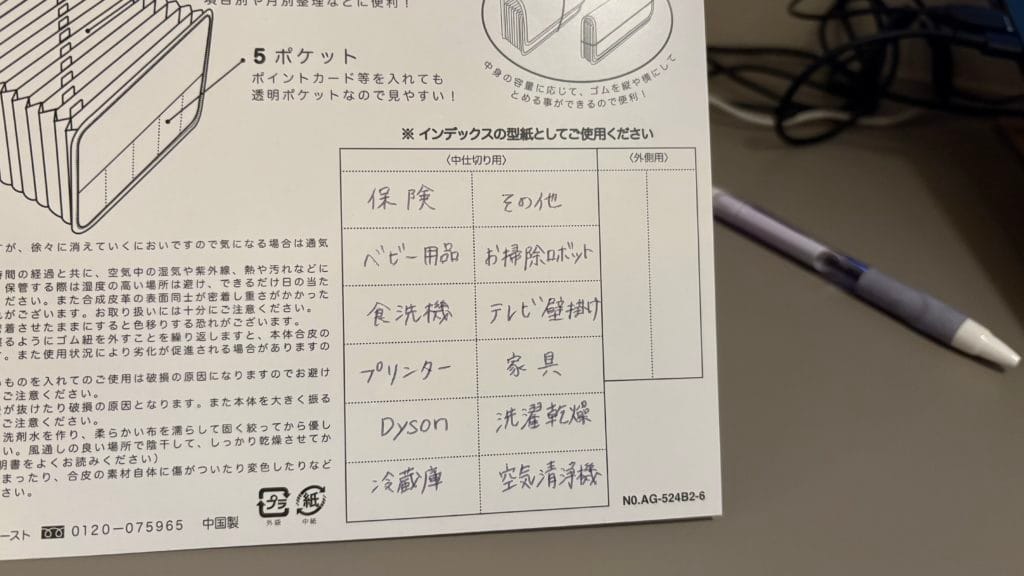 項目別や月別整理などに便利！
5 ポケット
ポイントカード等を入れても
透明ポケットなので見やすい！
中身の容量に応じて、ゴムを縦や横にして
とめる事ができるので便利！
※ インデックスの型紙としてご使用ください
〈中仕切り用〉 〈外側用〉
保険 その他
ベビー用品 お掃除ロボット
食洗機 テレビ壁掛け
プリンター 家具
Dyson 洗濯乾燥
冷蔵庫 空気清浄機
NO.AG-524B2-6
すが、徐々に消えていくにおいですので気になる場合は通気
時間の経過と共に、空気中の湿気や紫外線、熱や汚れなどに
保管する際は湿度の高い場所は避け、できるだけ日の当た
ださい。また合成皮革の表面同士が密着し重さがかかった
れがございます。お取り扱いには十分にご注意ください。
密着させたままにすると色移りする恐れがございます。
るようにゴム紐を外すことを繰り返しますと、本体合皮の
。また使用状況により劣化が促進される場合がありますの
いものを入れてのご使用は破損の原因になりますのでお避け
ご注意ください。
が抜けたり破損の原因となります。また本体を大きく振る
ご注意ください。
洗剤水を作り、柔らかい布を濡らして固く絞ってから優し
い。風通しの良い場所で陰干して、しっかり乾燥させてか
明書をよくお読みください）
まったり、合皮の素材自体に傷がついたり変色したりなど
さい。
プラ 紙
外袋 中紙
ースト 0120-075965 中国製